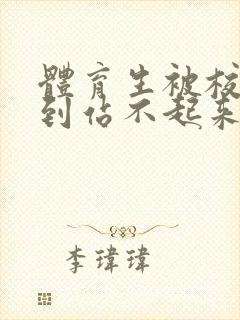 體育生被校
到佔不起來
李瑋瑋